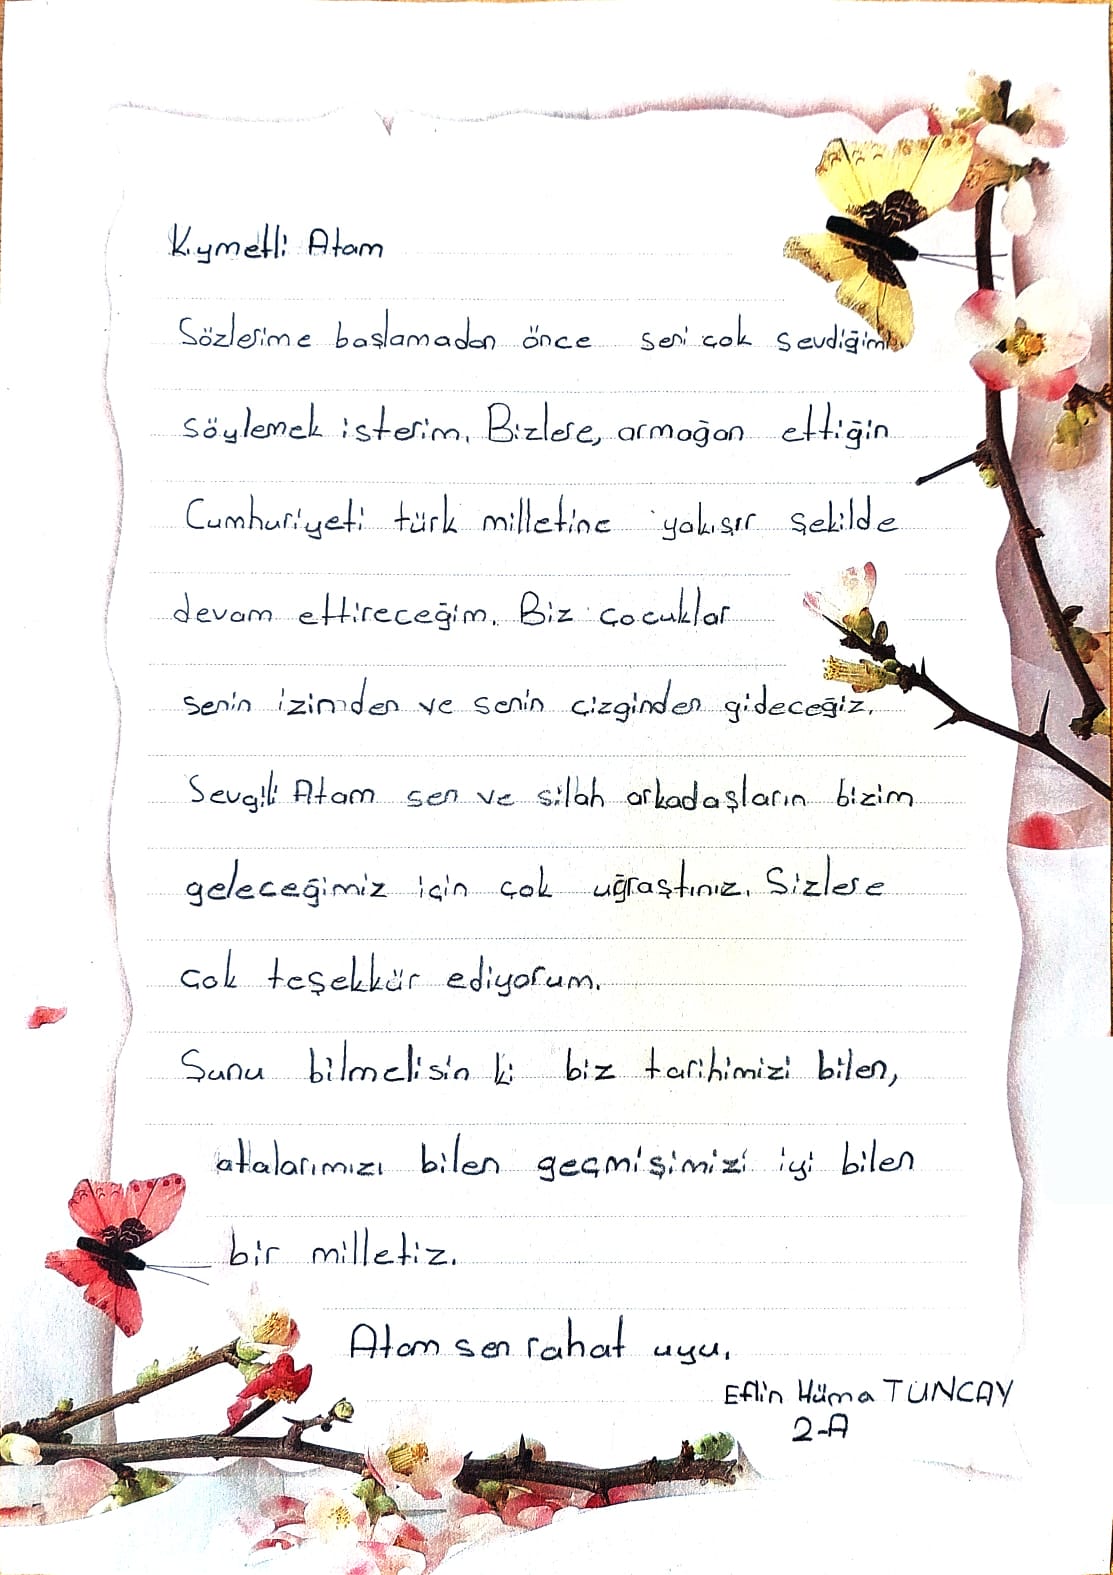 Kıymetli Atam
Sözlerime başlamadan önce seni çok sevdiğimi
söylemek isterim. Bizlere, armağan ettiğin
Cumhuriyeti türk milletine yakışır şekilde
devam ettireceğim. Biz çocuklar
senin izinden ve senin çizginden gideceğiz.
Sevgili Atam sen ve silah arkadaşların bizim
geleceğimiz için çok uğraştınız. Sizlere
çok teşekkür ediyorum.
Şunu bilmelisin ki biz tarihimizi bilen,
atalarımızı bilen geçmişimizi iyi bilen
bir milletiz.
Atam sen rahat uyu.
Eflin Hüma TUNCAY
2-A